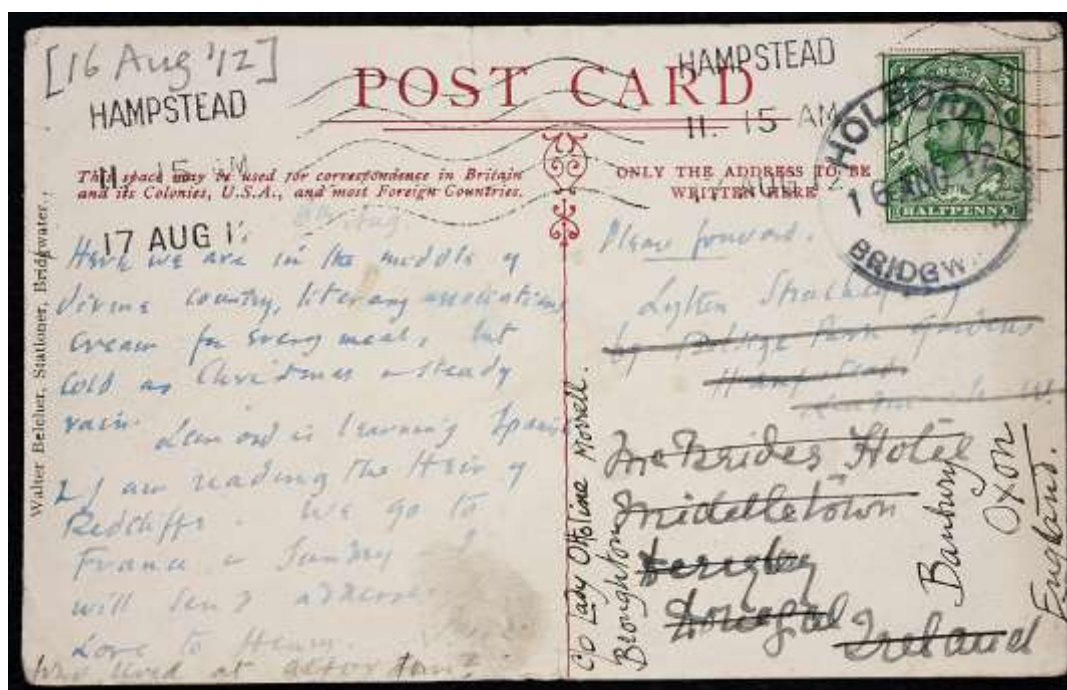 [16 Aug '12]
HAMPSTEAD
11. 15 AM
17 AUG 1
HAMPSTEAD
11. 15 AM
POST CARD
This space may be used for correspondence in Britain
and its Colonies, U.S.A., and most Foreign Countries.
ONLY THE ADDRESS TO BE
WRITTEN HERE
HOLFORD
16 AUG 12
BRIDGW
HALFPENNY
Walter Belcher, Stationer, Bridgwater.
Aug.
Here we are in the middle of
divine country, literary associations,
cream for every meal, but
cold as Christmas & steady
rain. Leonard is learning Spanish
& I am reading the Heir of
Redcliffe. We go to
France on Sunday &
will send address
Love to Henry.
Who lived at
Please forward.
Lytton Strachey
67 Belsize Park Gardens
Hampstead
London N.W.
McBrides Hotel
Middletown
Derrybeg
Donegal
Ireland
C/O Lady Ottoline Morrell.
Broughton
Banbury
Oxon
England.